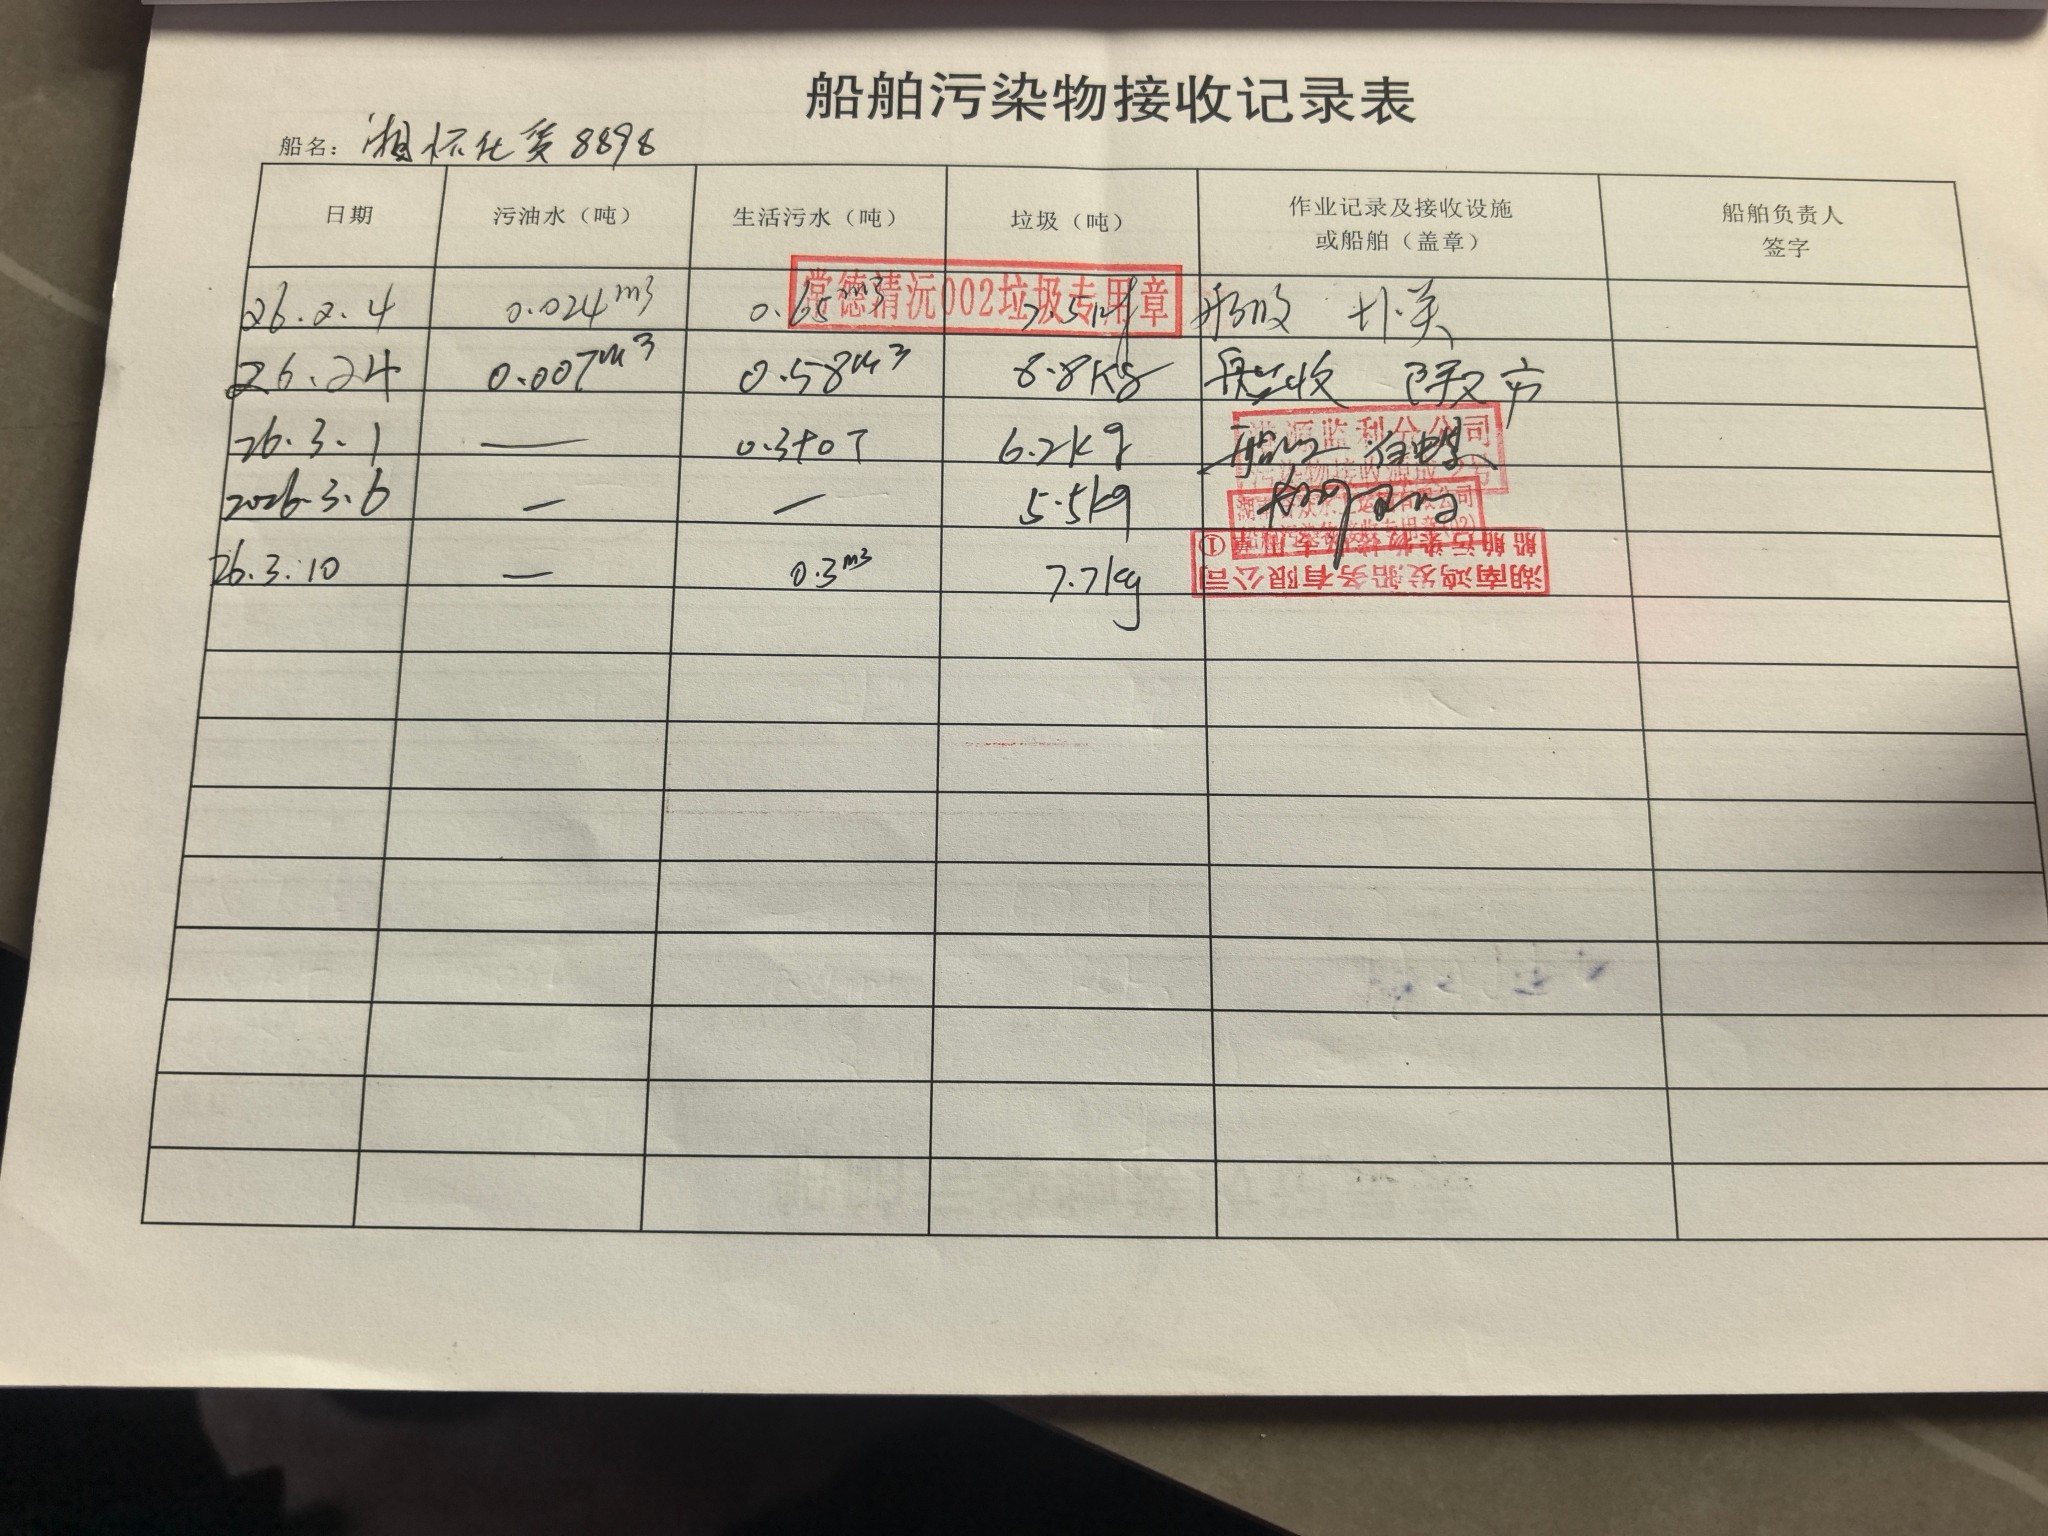 船舶污染物接收记录表
船名：湘怀化货8898
日期 污油水（吨） 生活污水（吨） 垃圾（吨） 作业记录及接收设施或船舶（盖章） 船舶负责人签字
26.2.4 0.024m3 0.65m3
常德清沅002垃圾专用章
26.24 0.007m3 0.58m3 8.8Kg
26.3.1 — 6.2kg
监利分公司
2026.3.6 — — 5.5kg
26.3.10 — 0.3m3 7.7kg
湖南鸿发船务有限公司
船舶污染物接收专用章①